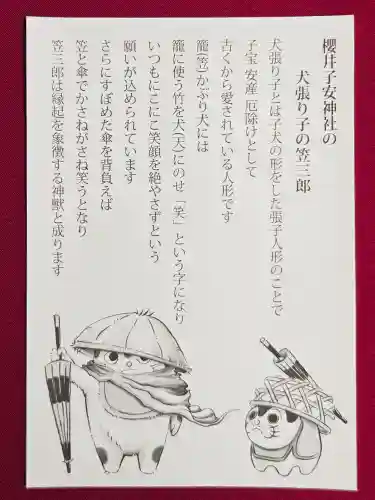 櫻井子安神社の
犬張り子の笠三郎
犬張り子とは子犬の形をした張子人形のことで
子宝 安産 厄除けとして
古くから愛されている人形です
籠(笠)かぶり犬には
籠に使う竹を犬(天)にのせ「笑」という字になり
いつもにこにこ笑顔を絶やさずという
願いが込められています
さらにすぼめた傘を背負えば
笠と傘でかさねがさね笑うとなり
笠三郎は縁起を象徴する神獣と成ります